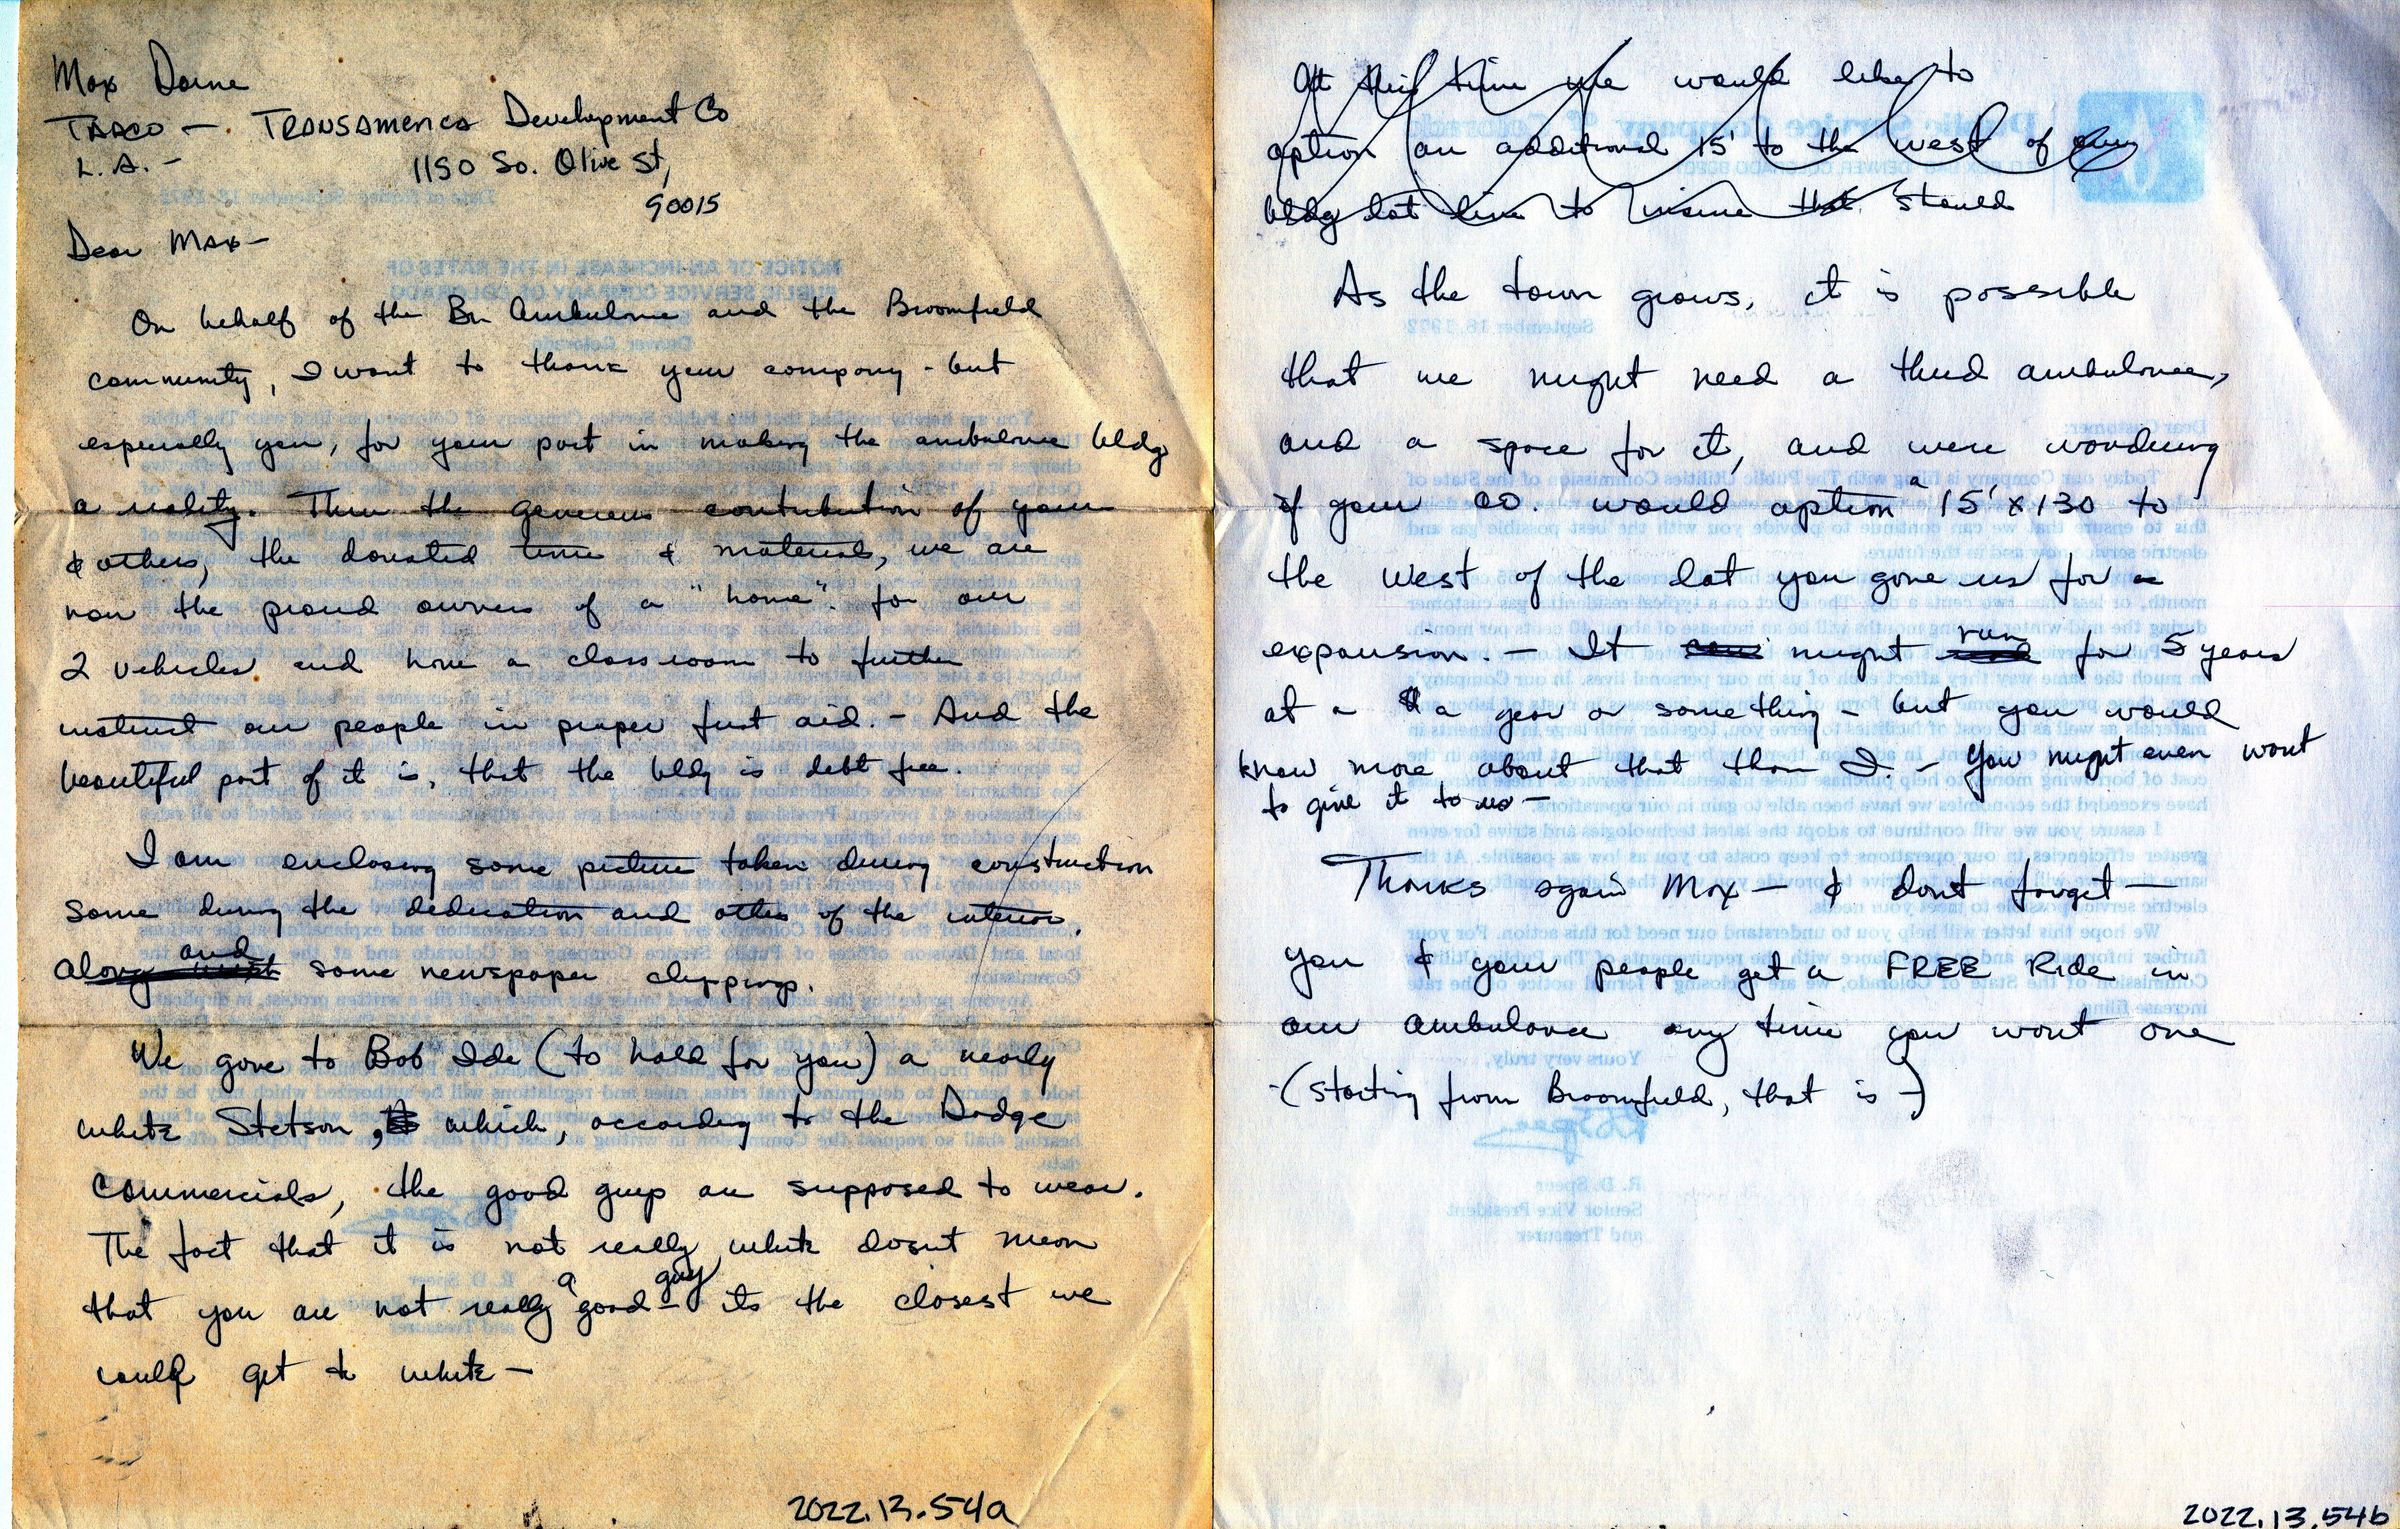 Max Dorne
TADCO - Transamerica Development Co
L.A. - 1150 So. Olive St,
90015
Dear Max-
On behalf of the Bm Ambulance and the Broomfield
community, I want to thank your company - but
especially you, for your part in making the ambulance bldg
a reality. Thru the generous contribution of yours
& others, the donated time & materials, we are
now the proud owners of a "home" for our
2 vehicles and have a classroom to further
instruct our people in proper first aid. - And the
beautiful part of it is, that the bldg is debt free.
I am enclosing some pictures taken during construction
some during the dedication and others of the interior.
and
along with some newspaper clippings.
We gave to Bob Ide (to hold for you) a nearly
white Stetson, which, according to the Dodge
Commercials, the good guys are supposed to wear.
The fact that it is not really white doesnt mean
that you are not really a good guy - its the closest we
could get to white -
2022.13.54a
At this time we would like to
option an additional 15' to the west of our
bldg lot line to insure that should
As the town grows, it is possible
that we might need a third ambulance,
and a space for it, and were wondering
if your co. would option a 15' x 130 to
the west of the lot you gave us for
expansion. - It might run for 5 years
at a $ a year or something - but you would
know more about that than I. - You might even want
to give it to us -
Thanks again Max - & dont forget -
you & your people get a FREE Ride in
our ambulance any time you want one
- (starting from Broomfield, that is -)
2022.13.54b